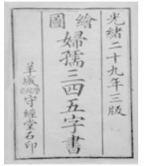 光緒二十九年三版
繪圖
婦孺三四五字書
羊城
守經堂石印